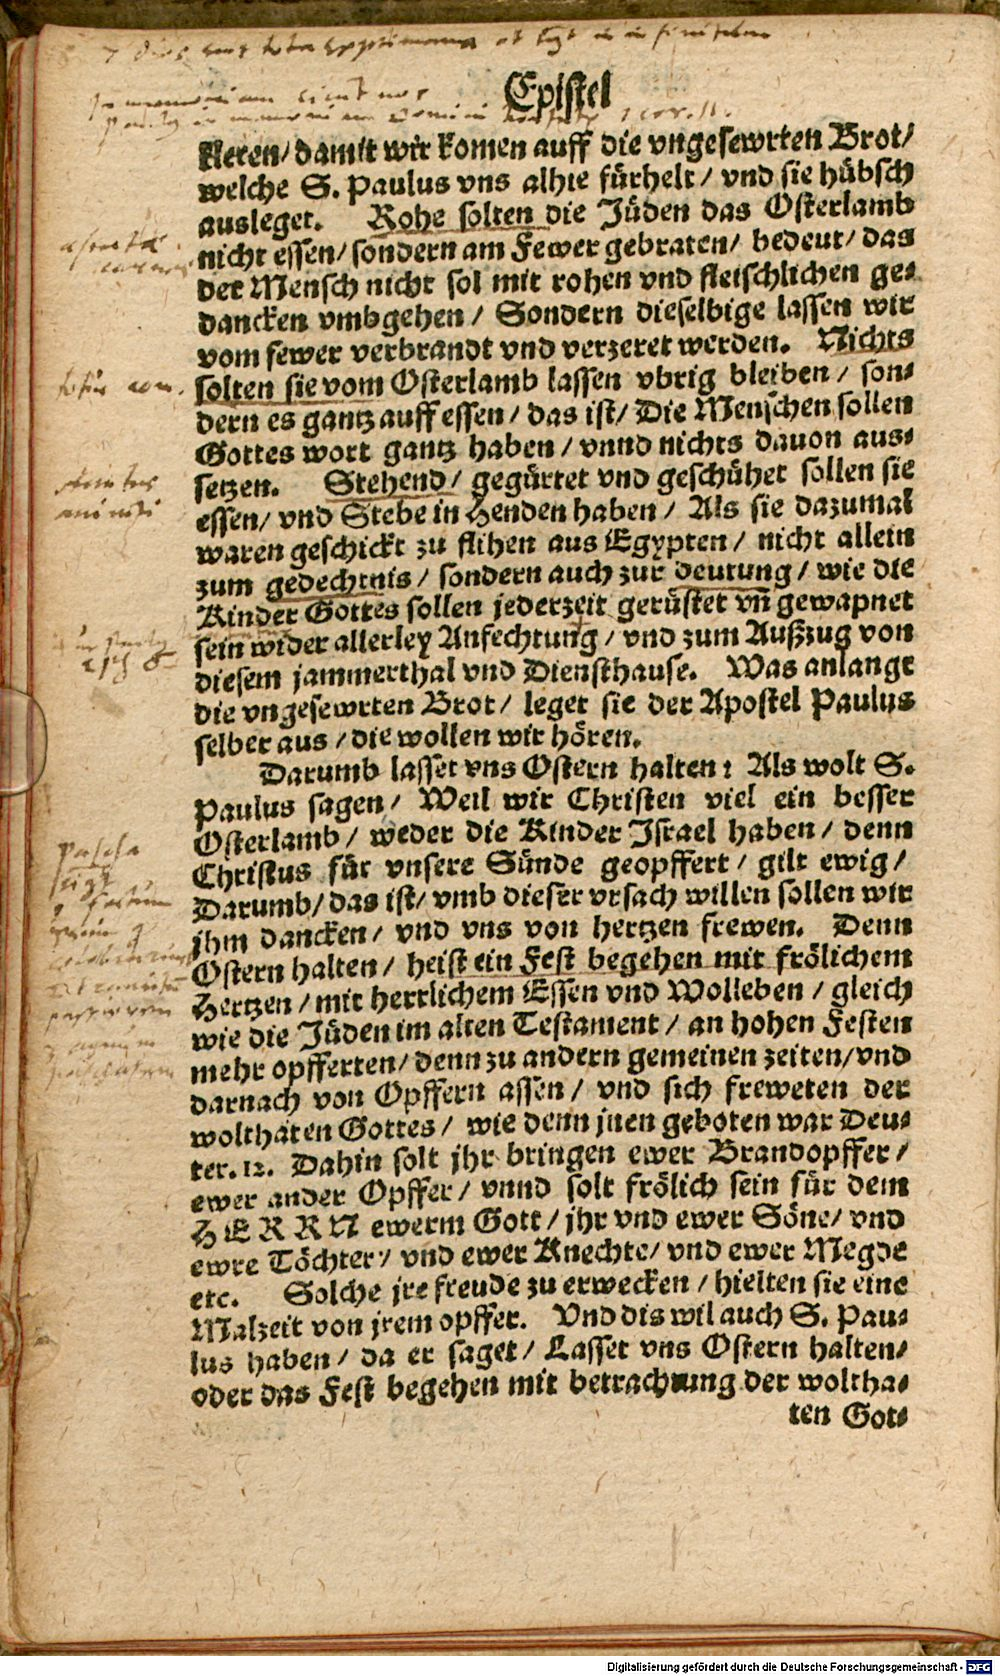 Epistel
1 Cor. 11.
kleren/ damit wir komen auff die vngesewrten Brot/
welche S. Paulus vns alhie fürhelt/ vnd sie hübsch
ausleget. Rohe solten die Jüden das Osterlamb
nicht essen/ sondern am Fewer gebraten/ bedeut/ das
der Mensch nicht sol mit rohen vnd fleischlichen ge-
dancken vmbgehen/ Sondern dieselbige lassen wir
vom fewer verbrandt vnd verzeret werden. Nichts
solten sie vom Osterlamb lassen vbrig bleiben/ son-
dern es gantz auff essen/ das ist/ Die Menschen sollen
Gottes wort gantz haben/ vnnd nichts dauon aus-
setzen. Stehend/ gegürtet vnd geschühet sollen sie
essen/ vnd Stebe in Henden haben/ Als sie dazumal
waren geschickt zu flihen aus Egypten/ nicht allein
zum gedechtnis/ sondern auch zur deutung/ wie die
Kinder Gottes sollen jederzeit gerüstet vñ gewapnet
sein wider allerley Anfechtung/ vnd zum Außzug von
diesem jammerthal vnd Diensthause. Was anlangt
die vngesewrten Brot/ leget sie der Apostel Paulus
selber aus/ die wollen wir hören.
Darumb lasset vns Ostern halten: Als wolt S.
Paulus sagen/ Weil wir Christen viel ein besser
Osterlamb/ weder die Kinder Israel haben/ denn
Christus für vnsere Sünde geopffert/ gilt ewig/
Darumb/ das ist/ vmb dieser vrsach willen sollen wir
jhm dancken/ vnd vns von hertzen frewen. Denn
Ostern halten/ heist ein Fest begehen mit frölichem
Hertzen/ mit herrlichem Essen vnd Wolleben/ gleich
wie die Jüden im alten Testament/ an hohen Festen
mehr opfferten/ denn zu andern gemeinen zeiten/ vnd
darnach von Opffern assen/ vnd sich freweten der
wolthaten Gottes/ wie denn jnen geboten war Deu-
ter. 12. Dahin solt jhr bringen ewer Brandopffer/
ewer ander Opffer/ vnnd solt frölich sein für dem
HERRN ewerm Gott/ jhr vnd ewer Söne/ vnd
ewre Töchter/ vnd ewer Knechte/ vnd ewer Megde
etc. Solche jre freude zu erwecken/ hielten sie eine
Malzeit von jrem opffer. Vnd dis wil auch S. Pau-
lus haben/ da er saget/ Lasset vns Ostern halten/
oder das Fest begehen mit betrachtung der woltha-
ten Got-
Pascha
Digitalisierung gefördert durch die Deutsche Forschungsgemeinschaft - DFG